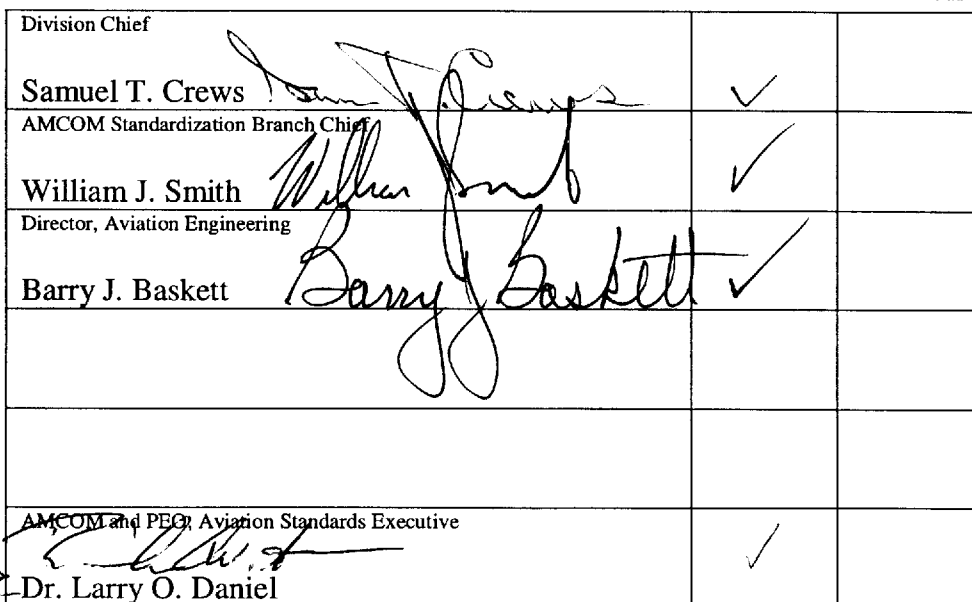 Division Chief
Samuel T. Crews Sam T. Crews ✓
AMCOM Standardization Branch Chief
William J. Smith William J Smith ✓
Director, Aviation Engineering
Barry J. Baskett Barry J Baskett ✓
AMCOM and PEO, Aviation Standards Executive
✓
Dr. Larry O. Daniel